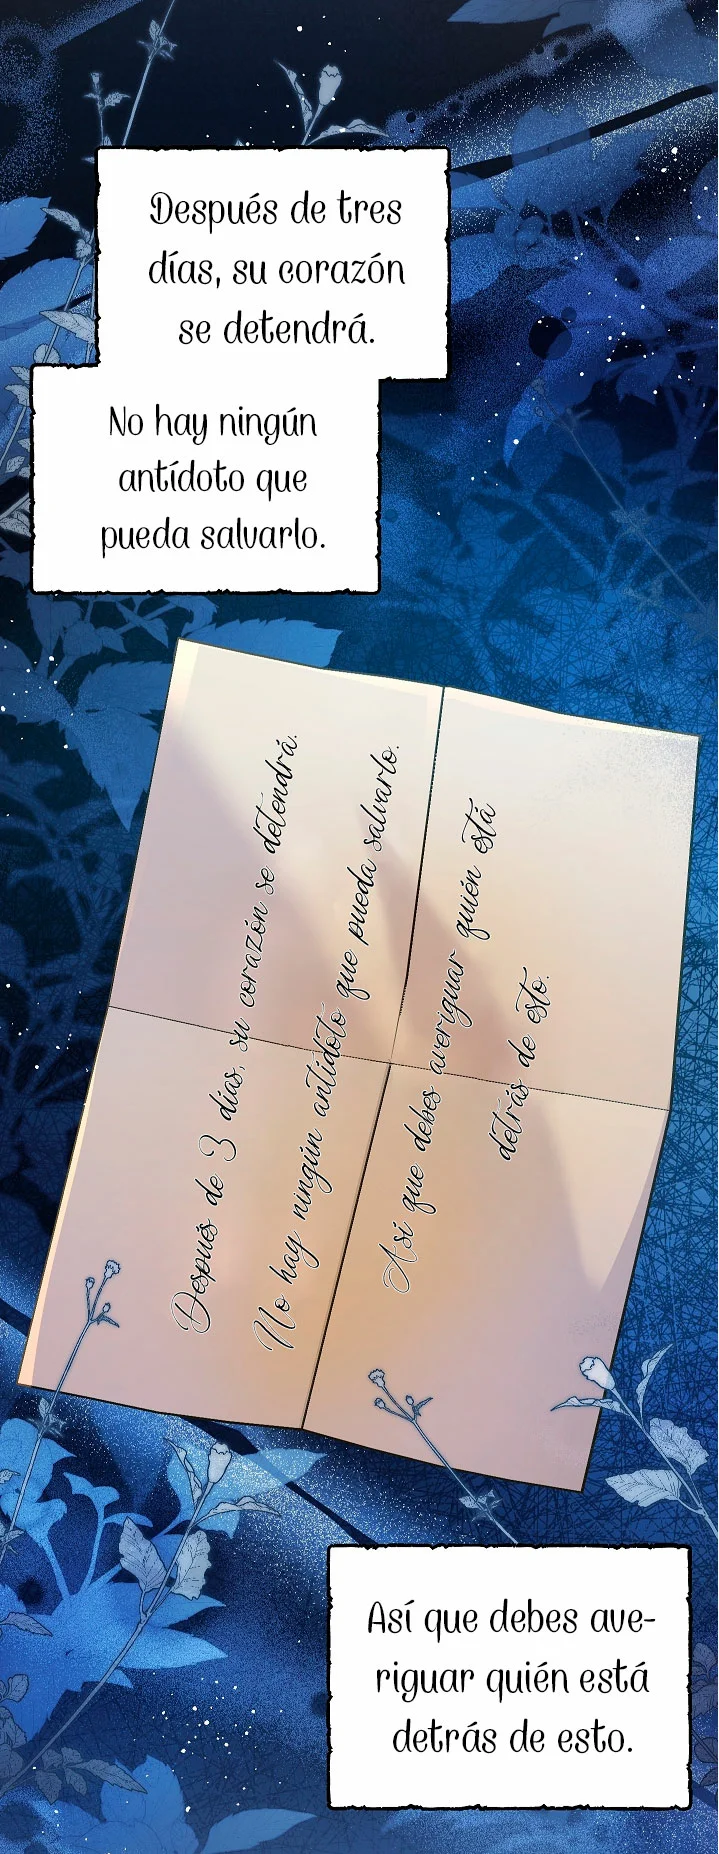 Después de tres
días, su corazón
se detendrá.
No hay ningún
antídoto que
pueda salvarlo.
Después de 3 días, su corazón se detendrá.
No hay ningún antídoto que pueda salvarlo.
Así que debes averiguar quién está
detrás de esto.
Así que debes ave-
riguar quién está
detrás de esto.